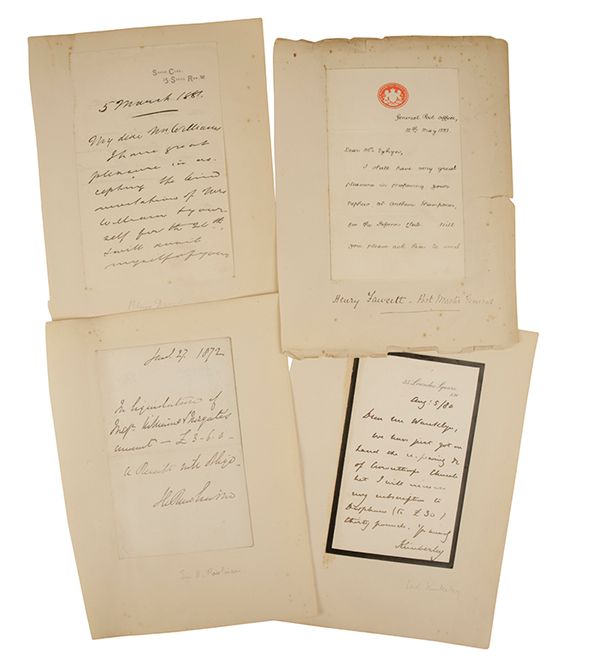 Savile Club,
15, Savile Row, W.
5 March 1881.
My dear Mr Williams
I have great
pleasure in ac-
cepting the kind
invitation of Mrs
Williams & your-
self for the 26th
& will avail
myself of your
General Post Office,
12th May 1881.
Dear Mr
I shall have very great
pleasure in proposing your
nephew as
for the Reform Club. Will
you please ask him to send
Henry Fawcett - Post Master General
Jan 27, 1872
In liquidation of
Messrs Williams & Norgate's
account - £3-6-0 -
a Receipt will oblige
35 Lowndes Square
S.W.
Aug: 5/80
Dear Mr
we have just got on
hand the re-pewing &c
of Church
but I will renew
my subscription to
(to £30)
thirty pounds. Yrs truly
Kimberley